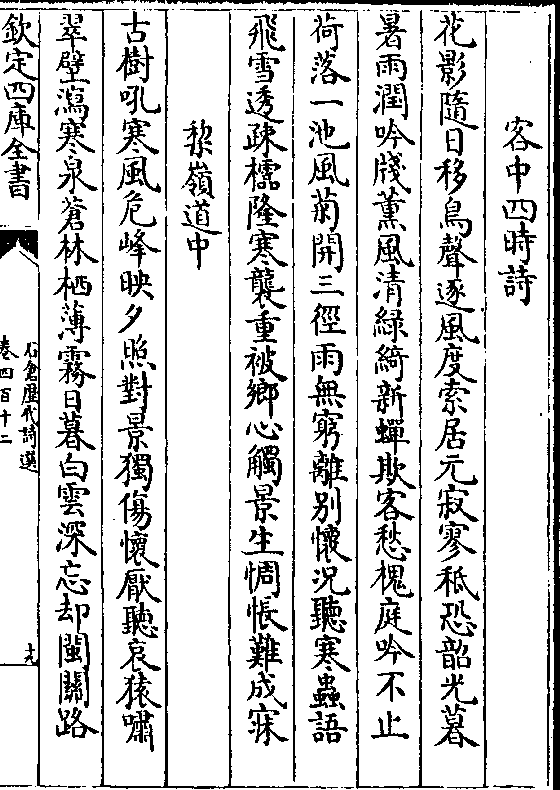 客中四時詩
花影隨日移鳥聲逐風度索居元寂寥秪恐韶光暮
暑雨潤吟牋薰風清緑綺新蟬欺客愁槐庭吟不止
荷落一池風菊開三徑雨無窮離别懐况聽寒蟲語
飛雪透疎櫺隆寒襲重被鄉心觸景生惆悵難成寐
黎嶺道中
古樹吼寒風危峰映夕照對景獨傷懐厭聽哀猿嘯
翠壁瀉寒泉蒼林栖薄霧日暮白雲深忘却閩關路
欽定四庫全書
石倉歴代詩選
卷四百十二
十九